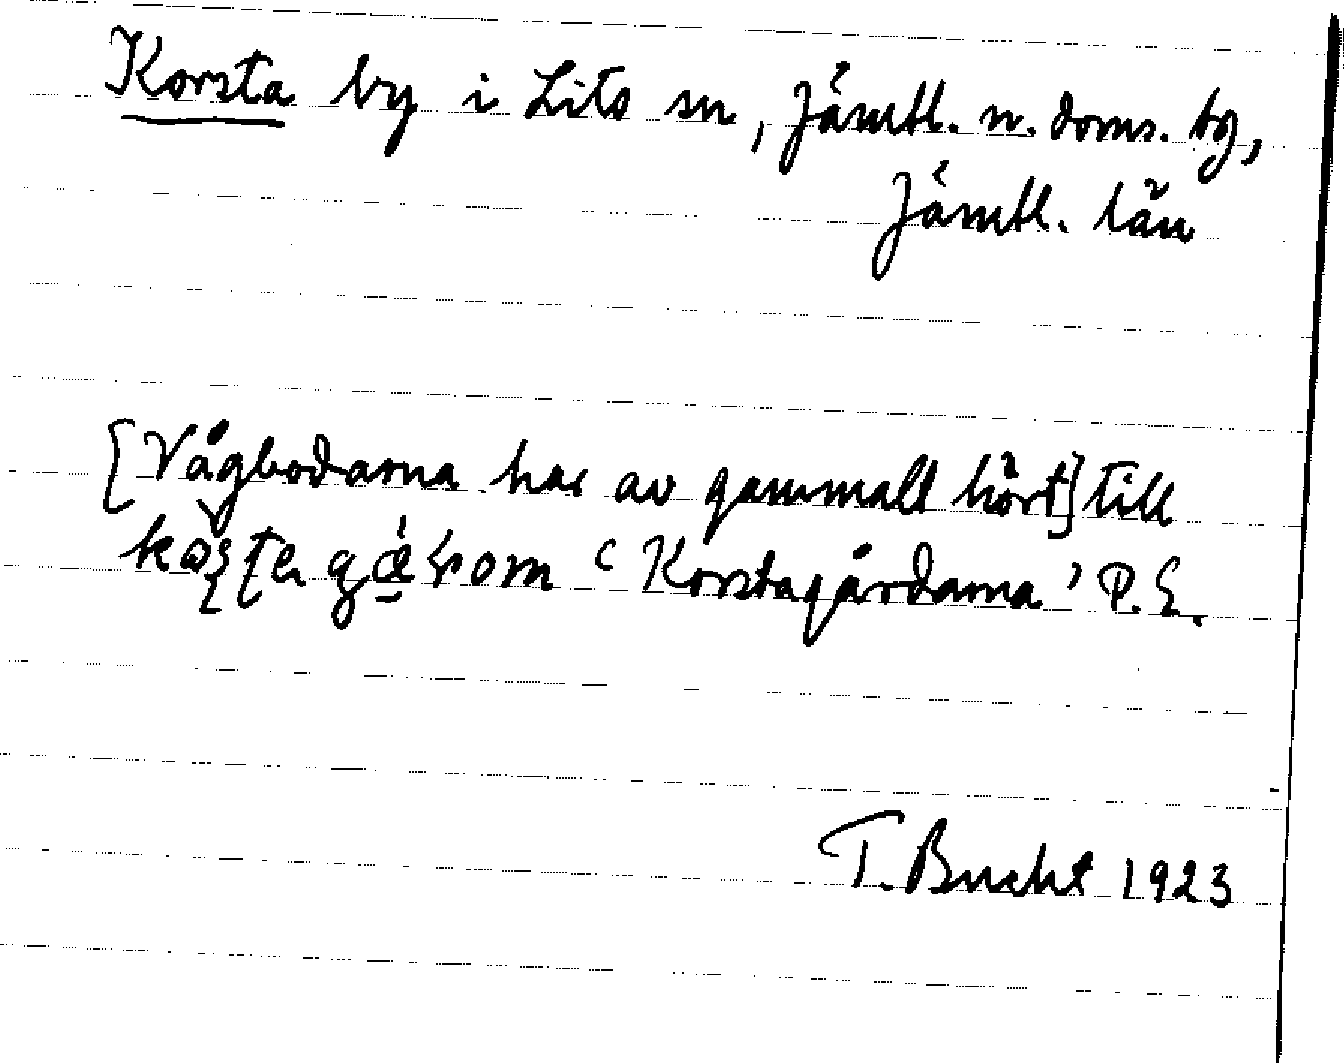 Korsta by i Lits sn, Jämtl. n. doms. tg,
Jämtl. län
[Vågbodarna har av gammalt hört] till
‘Korstagårdarna’ P.E.
T. Bucht 1923